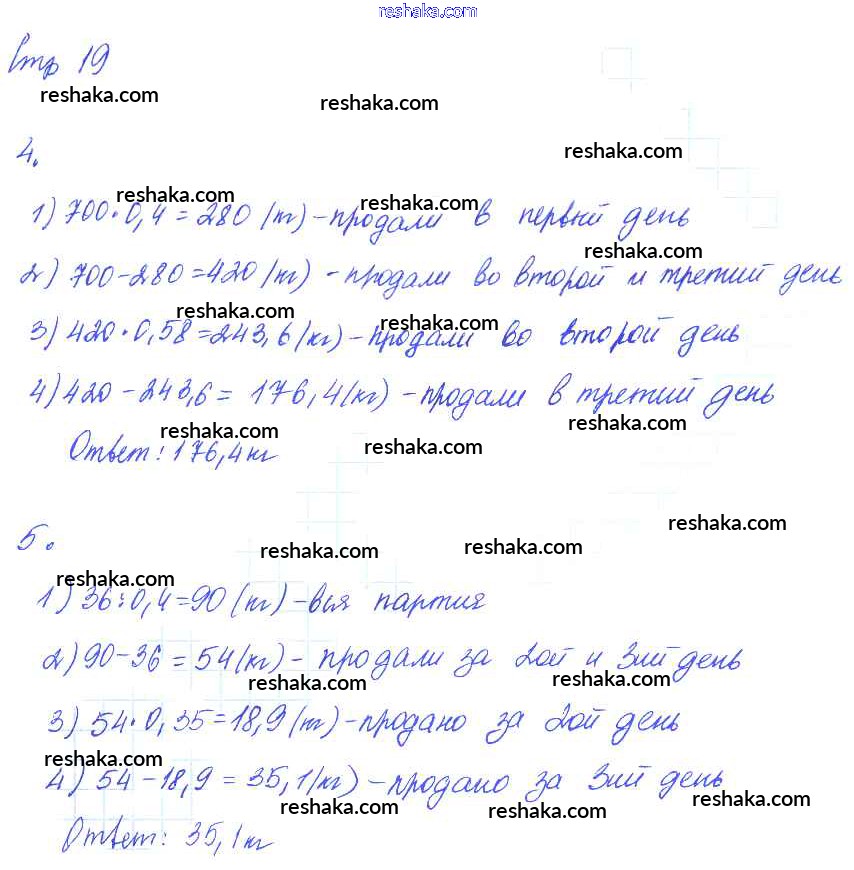 reshaka.com
Стр 19
reshaka.com reshaka.com
4.
reshaka.com
reshaka.com reshaka.com
1) 700·0,4=280 (кг) – продали в первый день
reshaka.com
2) 700-280=420 (кг) – продали во второй и третий день
reshaka.com reshaka.com
3) 420·0,58=243,6 (кг) – продали во второй день
4) 420-243,6= 176,4 (кг) – продали в третий день
reshaka.com reshaka.com
Ответ: 176,4 кг
reshaka.com
reshaka.com
5.
reshaka.com reshaka.com
reshaka.com
1) 36:0,4=90 (кг) – вся партия
2) 90-36=54 (кг) – продали за 2ой и 3ий день
reshaka.com reshaka.com
3) 54·0,35=18,9 (кг) – продано за 2ой день
reshaka.com
4) 54-18,9=35,1 (кг) – продано за 3ий день
reshaka.com reshaka.com reshaka.com
Ответ: 35,1 кг